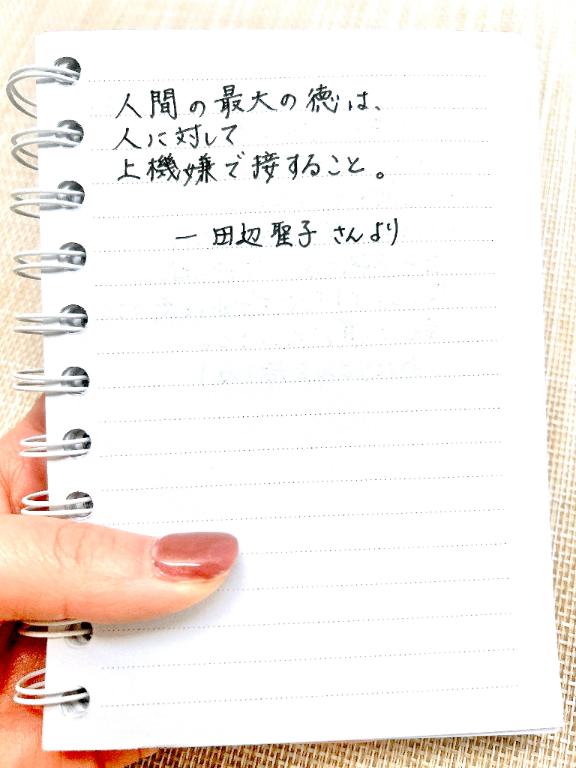 人間の最大の徳は、
人に対して
上機嫌で接すること。
— 田辺聖子 さんより